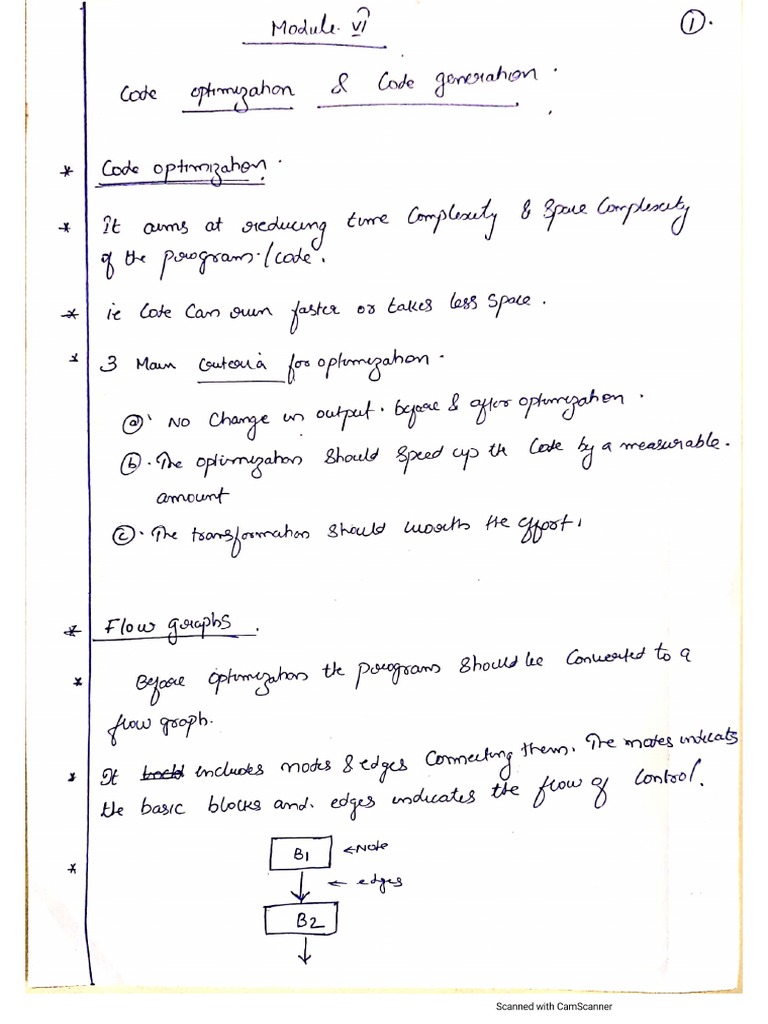 Module VI
①.
Code optimization & Code generation.
* Code optimization.
* It aims at reducing time Complexity & Space Complexity
of the program./code.
* ie Code Can run faster or takes less Space.
* 3 Main Criteria for optimization.
ⓐ. No Change in output. before & after optimization.
ⓑ. The optimization Should Speed up the Code by a measurable.
amount
ⓒ. The transformation Should worth the effort.
* Flow graphs.
* Before optimization the program Should be Converted to a
flow graph.
* It includes nodes & edges Connecting them. The nodes indicats
the basic blocks and. edges indicates the flow of Control.
*
B1 ← Node
← edges
B2
Scanned with CamScanner